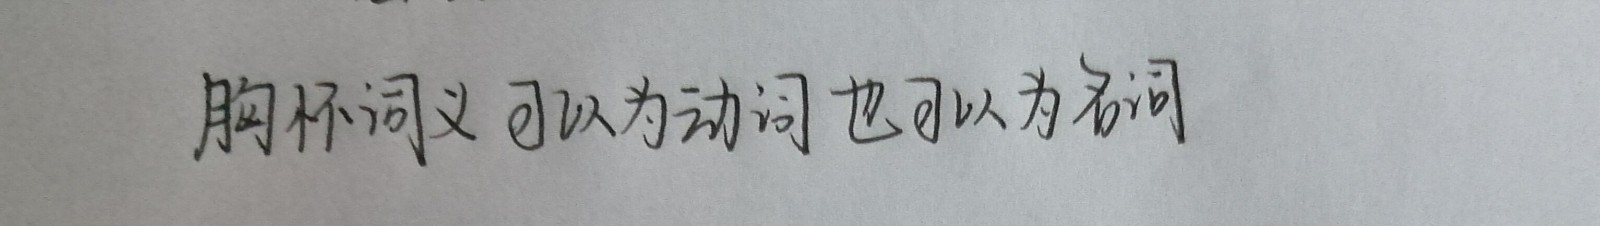 胸怀词义可以为动词也可以为名词